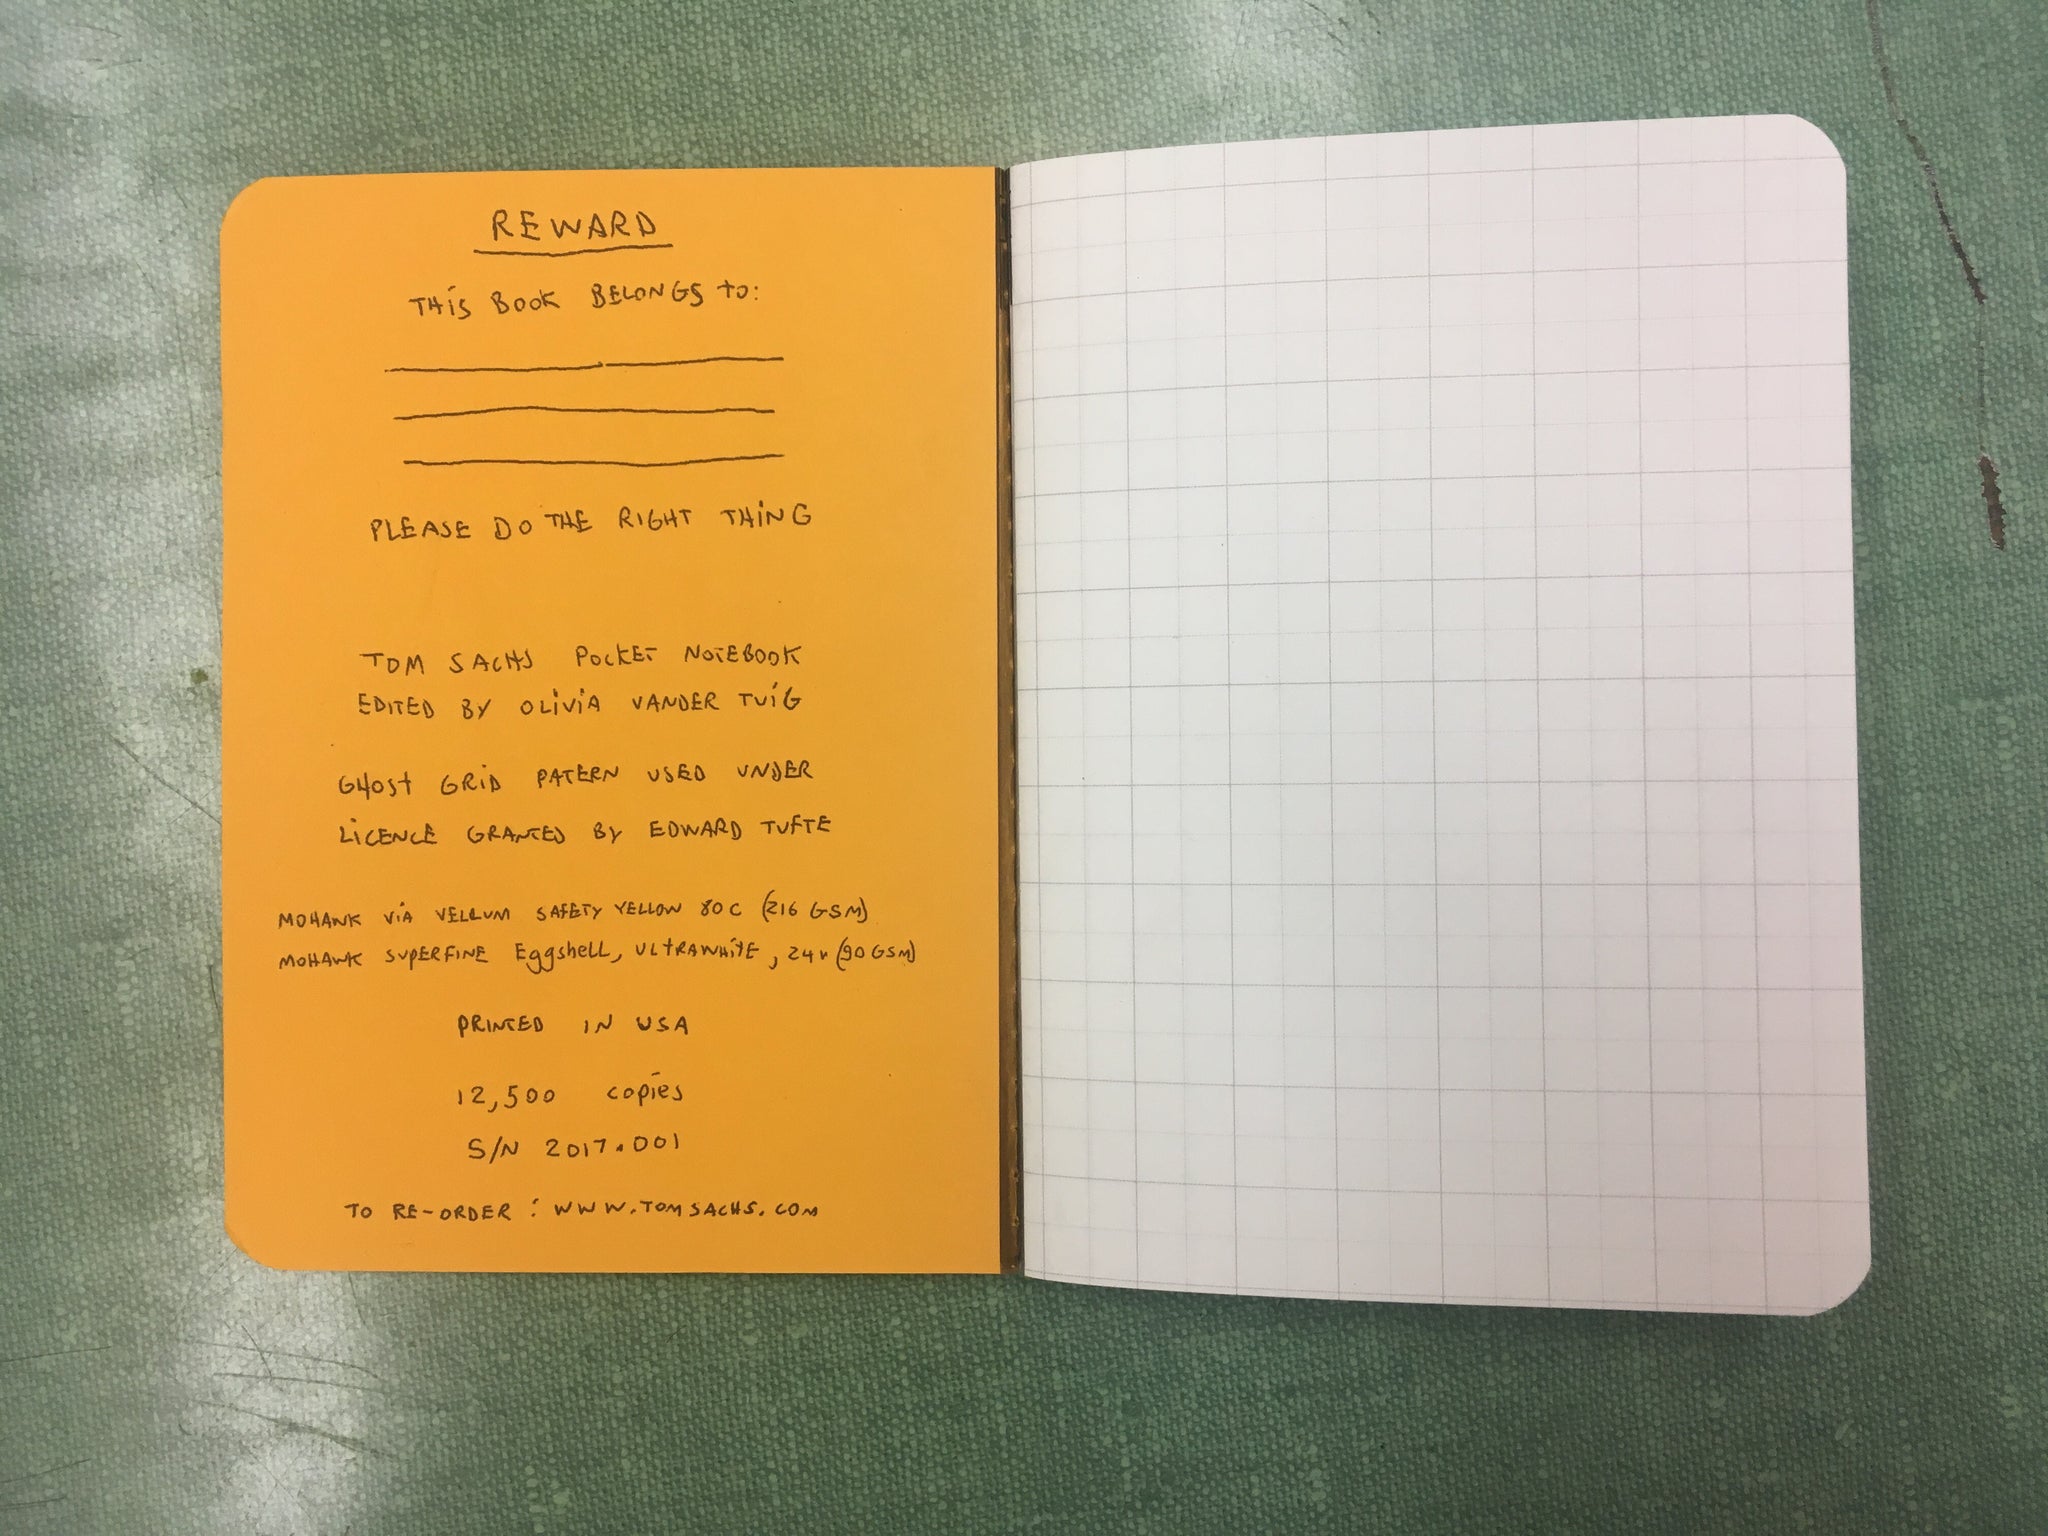 REWARD
THiS BOOK BELONGS to:
PLEASE DO THE RIGHT THiNG
TOM SACHS POCKET NOTEBOOK
EDITED BY OLIVIA VANDER TUIG
GHOST GRID PATERN USED UNDER
LICENCE GRANTED BY EDWARD TUFTE
MOHAWK VIA VELLUM SAFETY YELLOW 80C (216 GSM)
MOHAWK SUPERFINE Eggshell, ULTRAWHITE, 24 (90 GSM)
PRINTED IN USA
12,500 copies
S/N 2017.001
TO RE-ORDER: WWW.TOMSACHS.COM